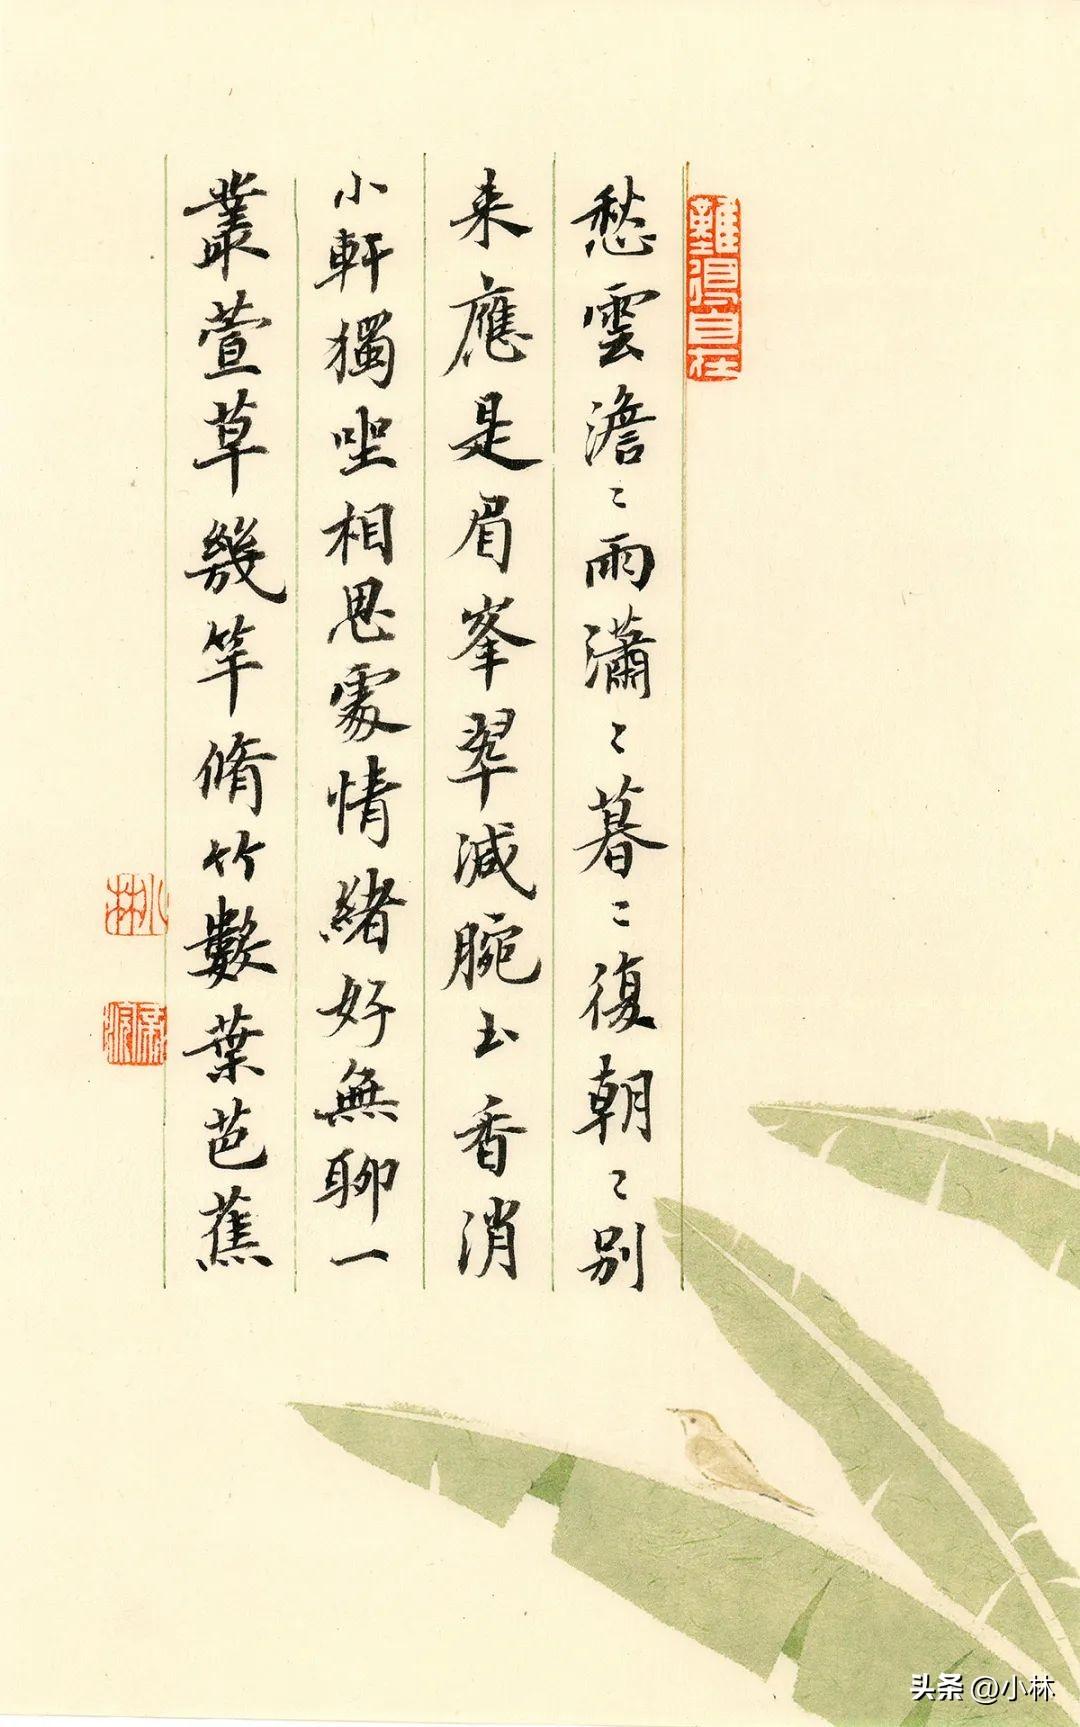 難得自在
愁雲澹〻雨瀟〻暮〻復朝〻别
来應是眉峯翠減腕玉香消
小軒獨坐相思處情緒好無聊一
叢萱草幾竿脩竹數葉芭蕉
小林
头条 @小林